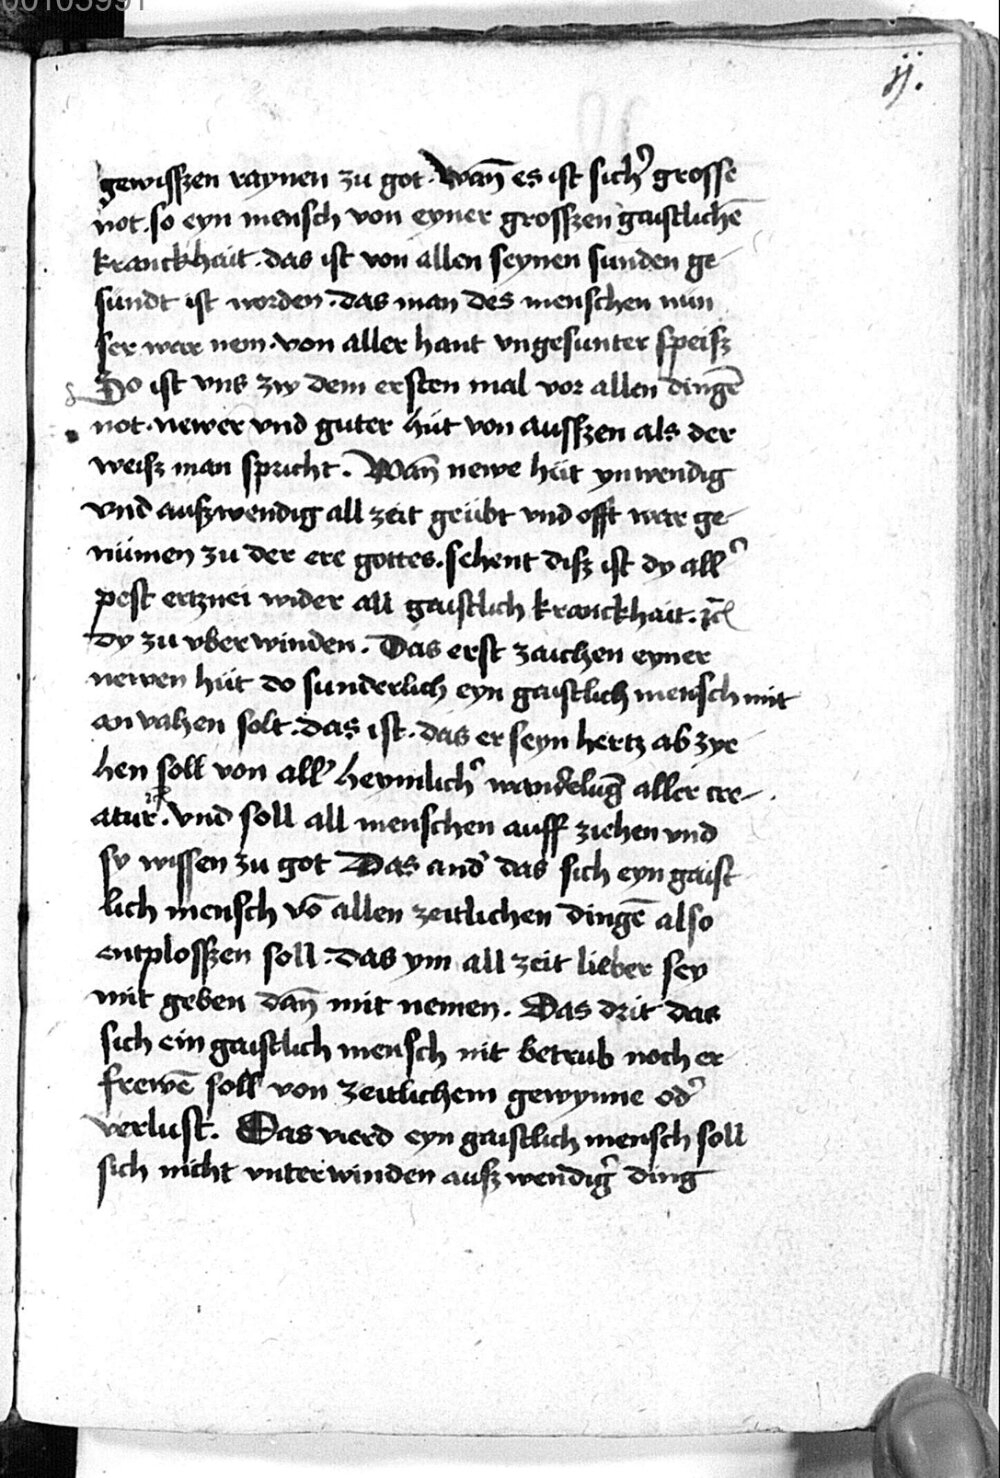 00105991
ij.
gewisszen raynen zu got. Wan̄ es ist sich᾽ grosse
not. so eyn mensch von eyner grosszen gaistlichē
kranckhait. das ist von allen seynen sunden ge
sundt ist worden. das man des menschen nun
ser war nem. von aller hant vngesunter speisz
So ist vns zw dem ersten mal vor allen dingē
not. newer vnd guter hüt von ausszen als der
weisz man spricht. Wan̄ newe hüt ynwendig
vnd auszwendig all zeit geübt vnd offt war ge-
nümen zu der ere gottes. schent disz ist dy all᾽
pest ertznei wider all gaistlich kranckhait.
dy zu vberwinden. Das erst zaichen eyner
newen hüt do sunderlich eyn gaistlich mensch mit
an vahen solt. das ist. das er seyn hertz ab zye
hen soll von all᾽ heymlich᾽ wandelūg aller cre-
atur. vnd soll all menschen auff ziehen vnd
sy wissen zu got Das and᾽ das sich eyn gaist
lich mensch vō allen zeitlichen dingē also
entplosszen soll. das ym all zeit lieber sey
mit geben dan̄ mit nemen. Das drit das
sich ein gaistlich mensch nit betrub noch er
frewē soll von zeitlichem gewynne od᾽
verlust. Das vierd eyn gaistlich mensch soll
sich nicht vnterwinden auszwendig᾽ ding